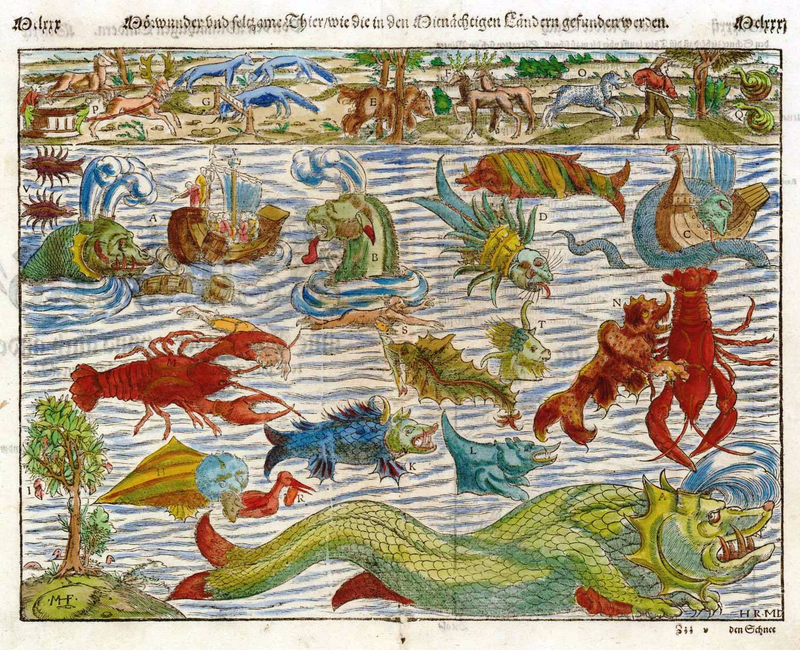 M.lxxx Mörwunder vnd seltzame Thier/wie die in den Mitnächtigen Ländern gefunden werden. Mclxxxj
F O
P G E Q
V A B D C
S T N
M
H R K L I
MF
HRMD
Zii v den Schnee